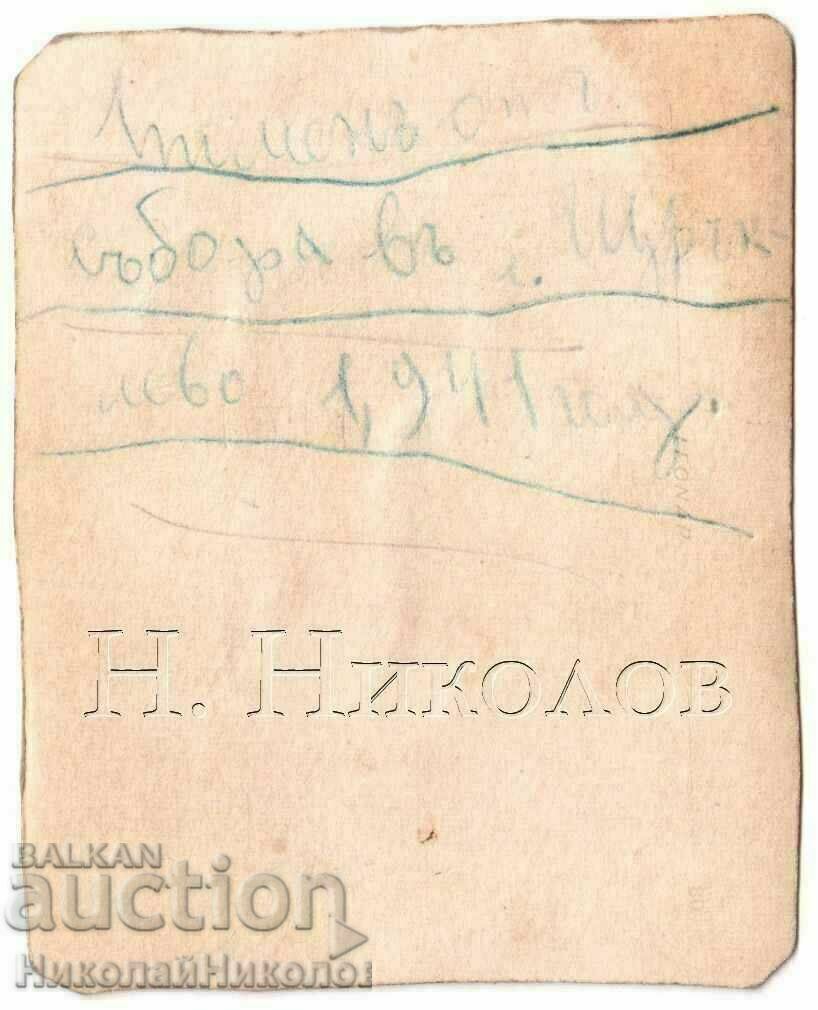 Спомѣнъ от
събора въ с. Щрък-
лево 1,941 год.
LEONAR
Н. Николов
BALKAN
auction
НиколайНиколов